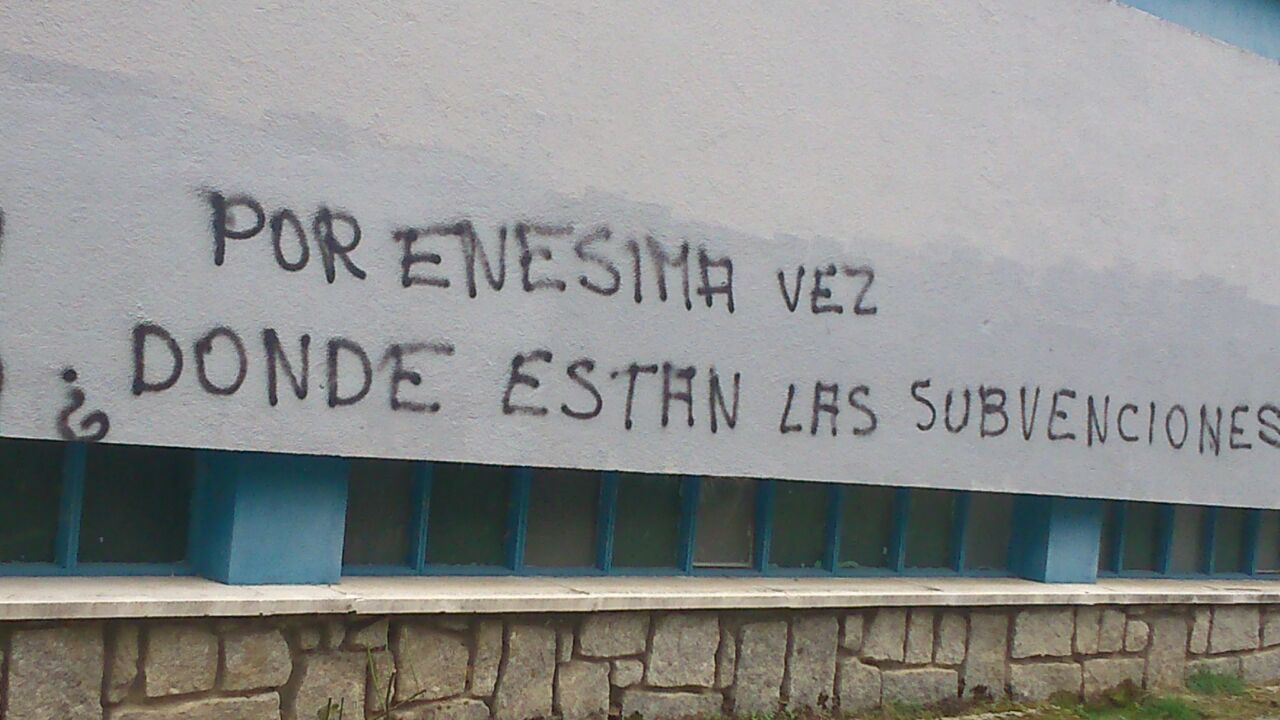 POR ENESIMA VEZ
¿DONDE ESTAN LAS SUBVENCIONES